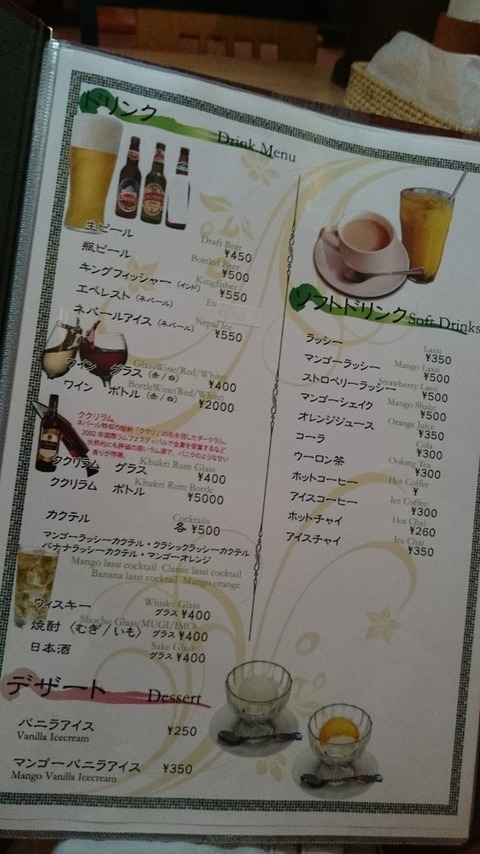 ドリンク
Drink Menu
生ビール
Draft Beer
¥450
瓶ビール
Bottled Beer
¥500
キングフィッシャー (インド)
Kingfisher
¥550
エベレスト (ネパール)
ネパールアイス (ネパール)
Nepal Ice
¥550
ワイン グラス (赤/白)
GlassWine(Red/White)
¥400
ワイン ボトル (赤/白)
BottleWine(Red/White)
¥2000
ククリラム
ネパール特有の短剣「ククリ」の名を冠したダークラム。
2002年国際ラムフェスティバルで金賞を受賞するなど
世界的にも評価の高いラム酒で、バニラのような甘い
香りが特徴。
ククリラム グラス
Khukri Rum Glass
¥400
ククリラム ボトル
Khukri Rum Bottle
¥5000
カクテル
Cocktails
各 ¥500
マンゴーラッシーカクテル・クラシックラッシーカクテル
バナナラッシーカクテル・マンゴーオレンジ
Mango lassi cocktail Classic lassi cocktail
Banana lassi cocktail Mango orange
ウィスキー
Whisky Glass
グラス ¥400
焼酎 (むぎ/いも)
Shochy Glass(MUGI/IMO)
グラス ¥400
日本酒
Sake Glass
グラス ¥400
デザート
Dessert
バニラアイス
Vanilla Icecream
¥250
マンゴーバニラアイス
Mango Vanilla Icecream
¥350
ソフトドリンク
Soft Drinks
ラッシー
Lassi
¥350
マンゴーラッシー
Mango Lassi
¥500
ストロベリーラッシー
Strawberry Lassi
¥500
マンゴーシェイク
Mango Shake
¥500
オレンジジュース
Orange Juice
¥350
コーラ
Cola
¥300
ウーロン茶
Oolong Tea
¥300
ホットコーヒー
Hot Coffee
¥
アイスコーヒー
Ice Coffee
¥300
ホットチャイ
Hot Chai
¥260
アイスチャイ
Ice Chai
¥350